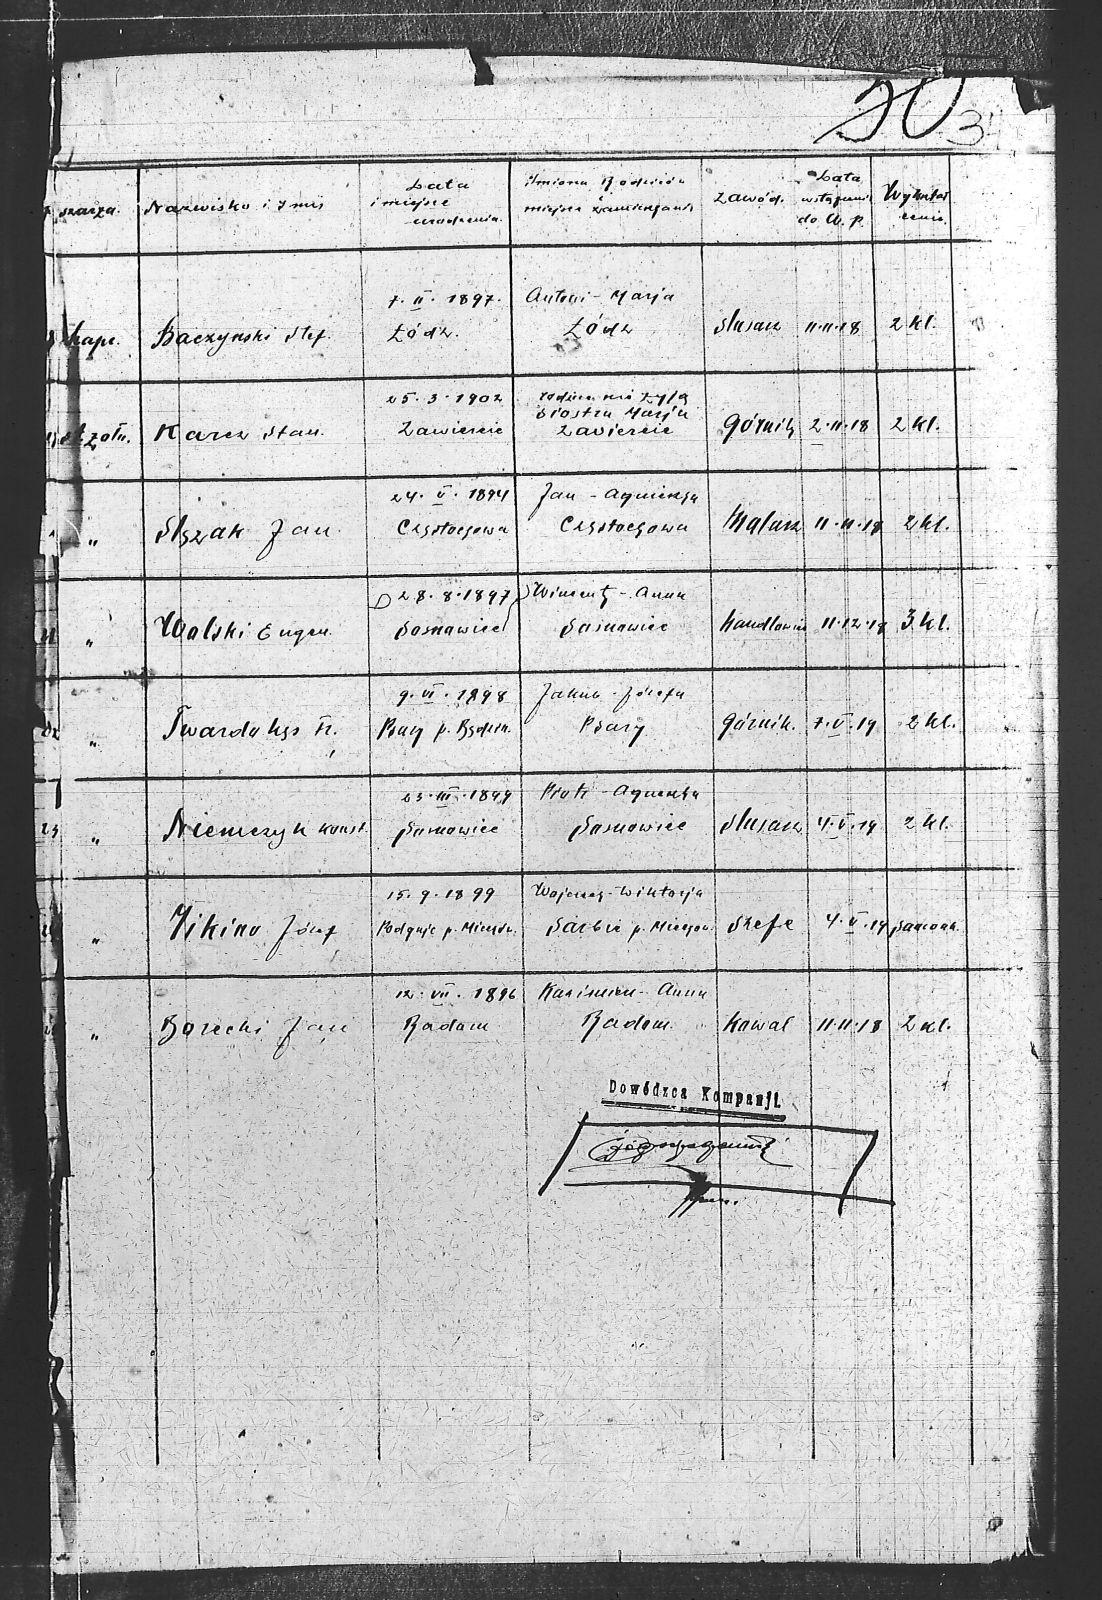 30 31
szarża. Nazwisko i Imię Data i miejsce urodzenia. Imiona Rodziców miejsce zamieszkania zawód. Data wstąpienia do W. P. Wykształcenie
7. II. 1897. Antoni - Marja
kapr. Baczyński Stef. Łódź. Łódz slusarz 11.11.18 2 kl.
25. 3. 1902 rodzice nie żyją
siostra Marja
st. żołn. Karcz Stan. Zawiercie Zawiercie górnik 2.11.18 2 kl.
24. V. 1894 Jan - Agnieszka
" Ślęzak Jan Częstochowa Częstochowa Malarz 11.11.18 2 kl.
28. 8. 1897 Wincenty - Anna
21 " Wolski Eugen. Sosnowiec Sosnowiec handlowiec 11.12.18 3 kl.
9. VI. 1898 Jakub - Józefa
22 " Twardokęs Fr. Psary p. Będzin. Psary górnik. 7.V.19 2 kl.
23. III. 1899 Piotr - Agnieszka
23 " Niemczyk Konst. Sosnowiec Sosnowiec slusarz 4.V.19 2 kl.
15. 9. 1899 Wojciech - Wiktorja
" Józef p. Miechów. p. Miechów. 4.V.19 samouk
12. VII. 1896 Kazimierz - Anna
" Borecki Jan Radom Radom Kowal 11.11.18 2 kl.
Dowódzca Kompanji.